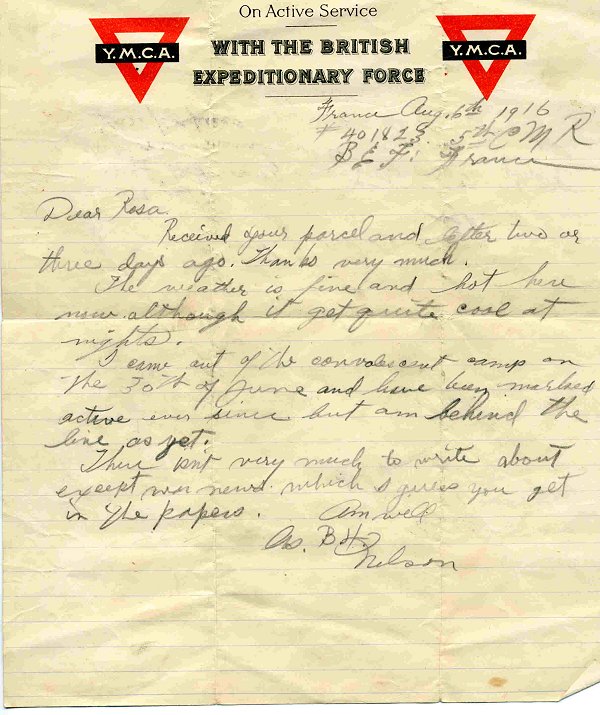 On Active Service
Y.M.C.A. WITH THE BRITISH Y.M.C.A.
EXPEDITIONARY FORCE
France Aug. 6th, 1916
# 401828 5th C M R
B E F. France
Dear Rosa.
Received your parcel and after two or
three days ago. Thanks very much.
The weather is fine and hot here
now although it get quite cool at
nights.
I came out of the convalescent camp on
the 30th of June and have been marked
active ever since but am behind the
line as yet.
There isn't very much to write about
except war news which I guess you get
in the papers. Am well
As. B 4.
Nelson